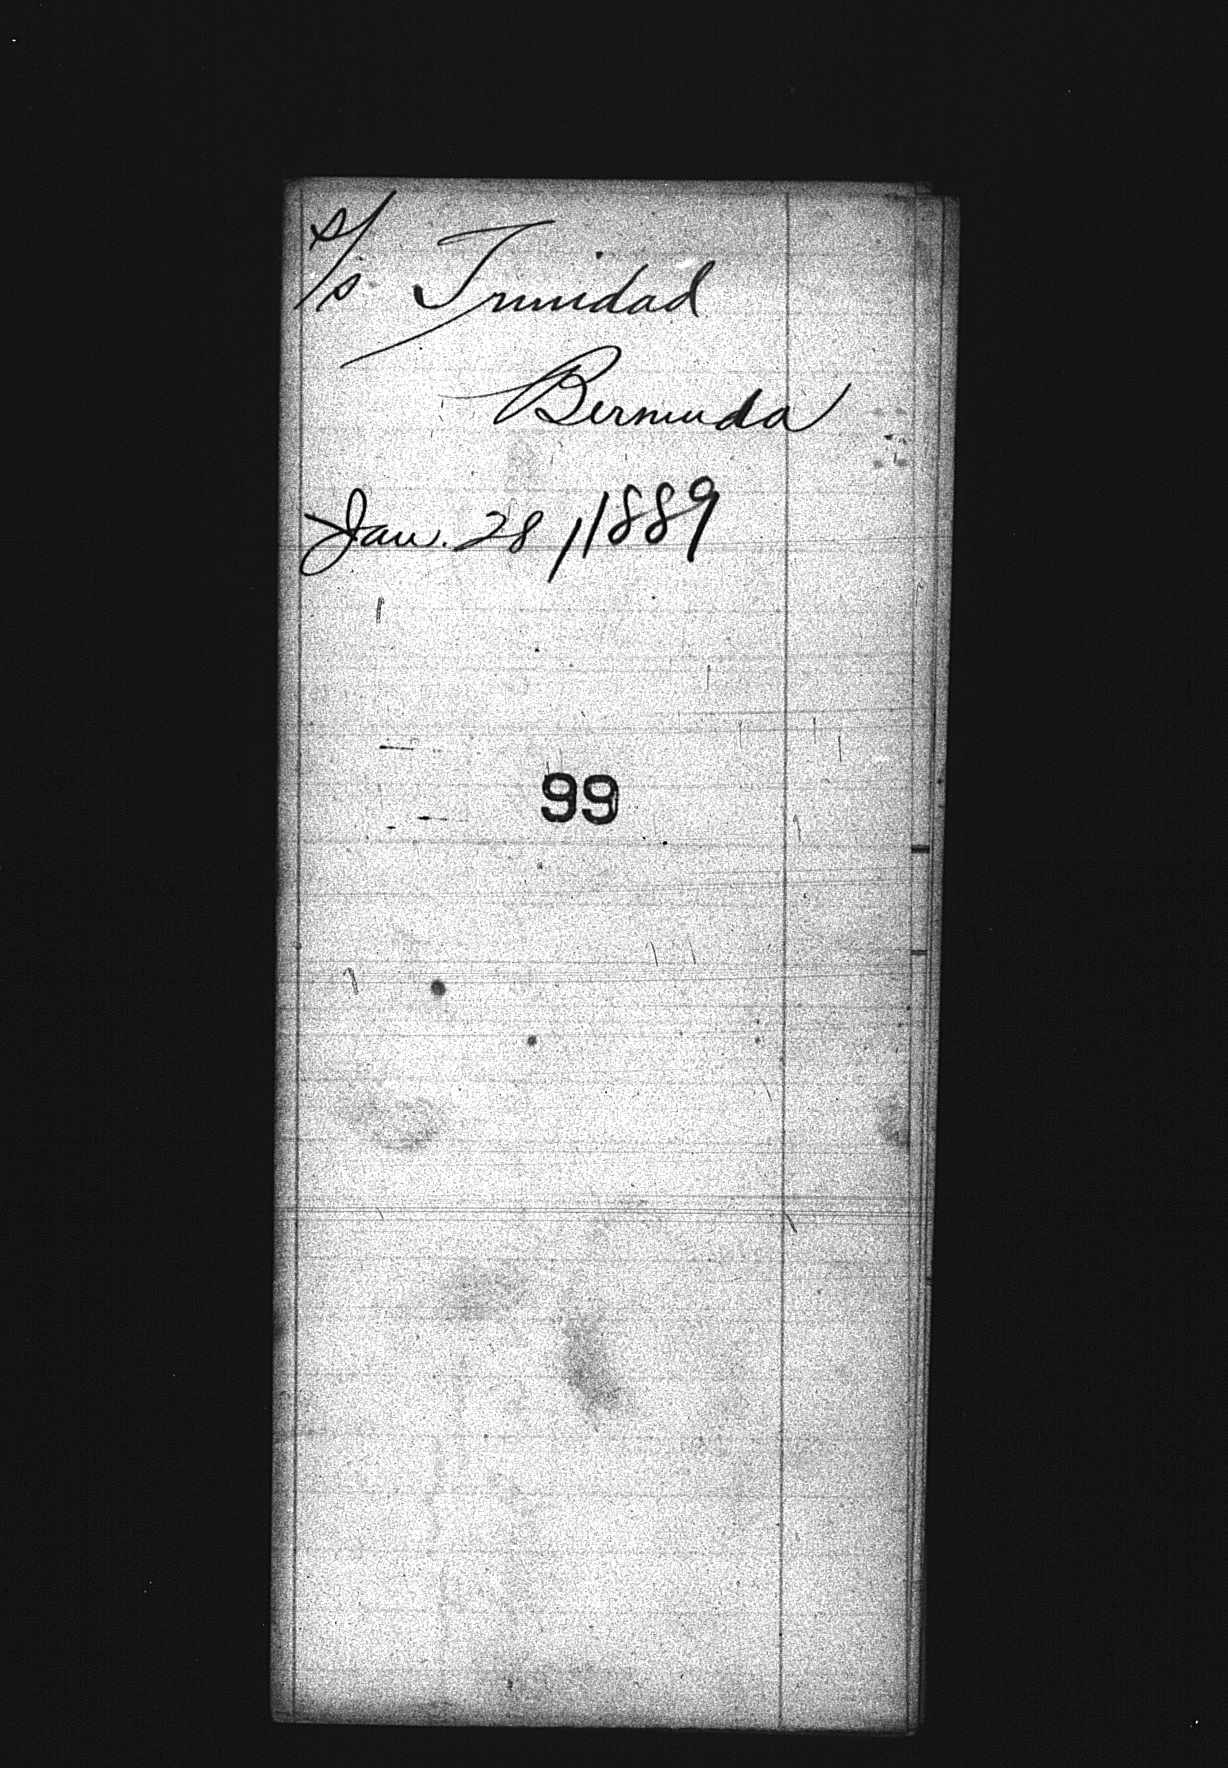 S/S Trinidad
Bermuda
Jan. 28, 1889
99